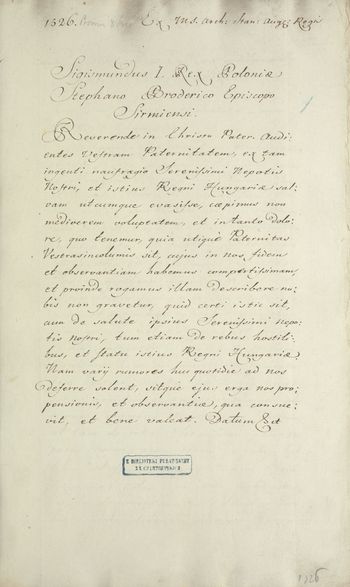 1526. Ex MS. Arch: Stan: Aug: Regis
Sigismundus I. Rex Poloniæ
Stephano Broderico Episcopo
Sirmiensi.
Reverende in Christo Pater. Audi-
entes Vestram Paternitatem, ex tam
ingenti naufragio Serenissimi Nepotis
Nostri, et istius Regni Hungariæ sal-
vam utcumque evasisse, cæpimus non
mediocrem voluptatem, et in tanto dolo-
re, quo tenemur, quia utique Paternitas
Vestra incolumis sit, cujus in nos fidem
et observantiam habemus compertissimam,
et proinde rogamus illam describere no-
bis non gravetur, quid certi istic sit,
cum de salute ipsius Serenissimi nepo-
tis nostri, tum etiam de rebus hostili-
bus, et statu istius Regni Hungariæ
Nam varij rumores huc quotidie ad nos
deferre solent, sitque ejus erga nos pro-
pensionis, et observantiæ, qua consue-
vit, et bene valeat. Datum
E BIBLIOTHECA
1526